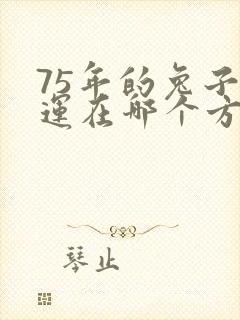 75年的兔子
運在哪个方
琴止